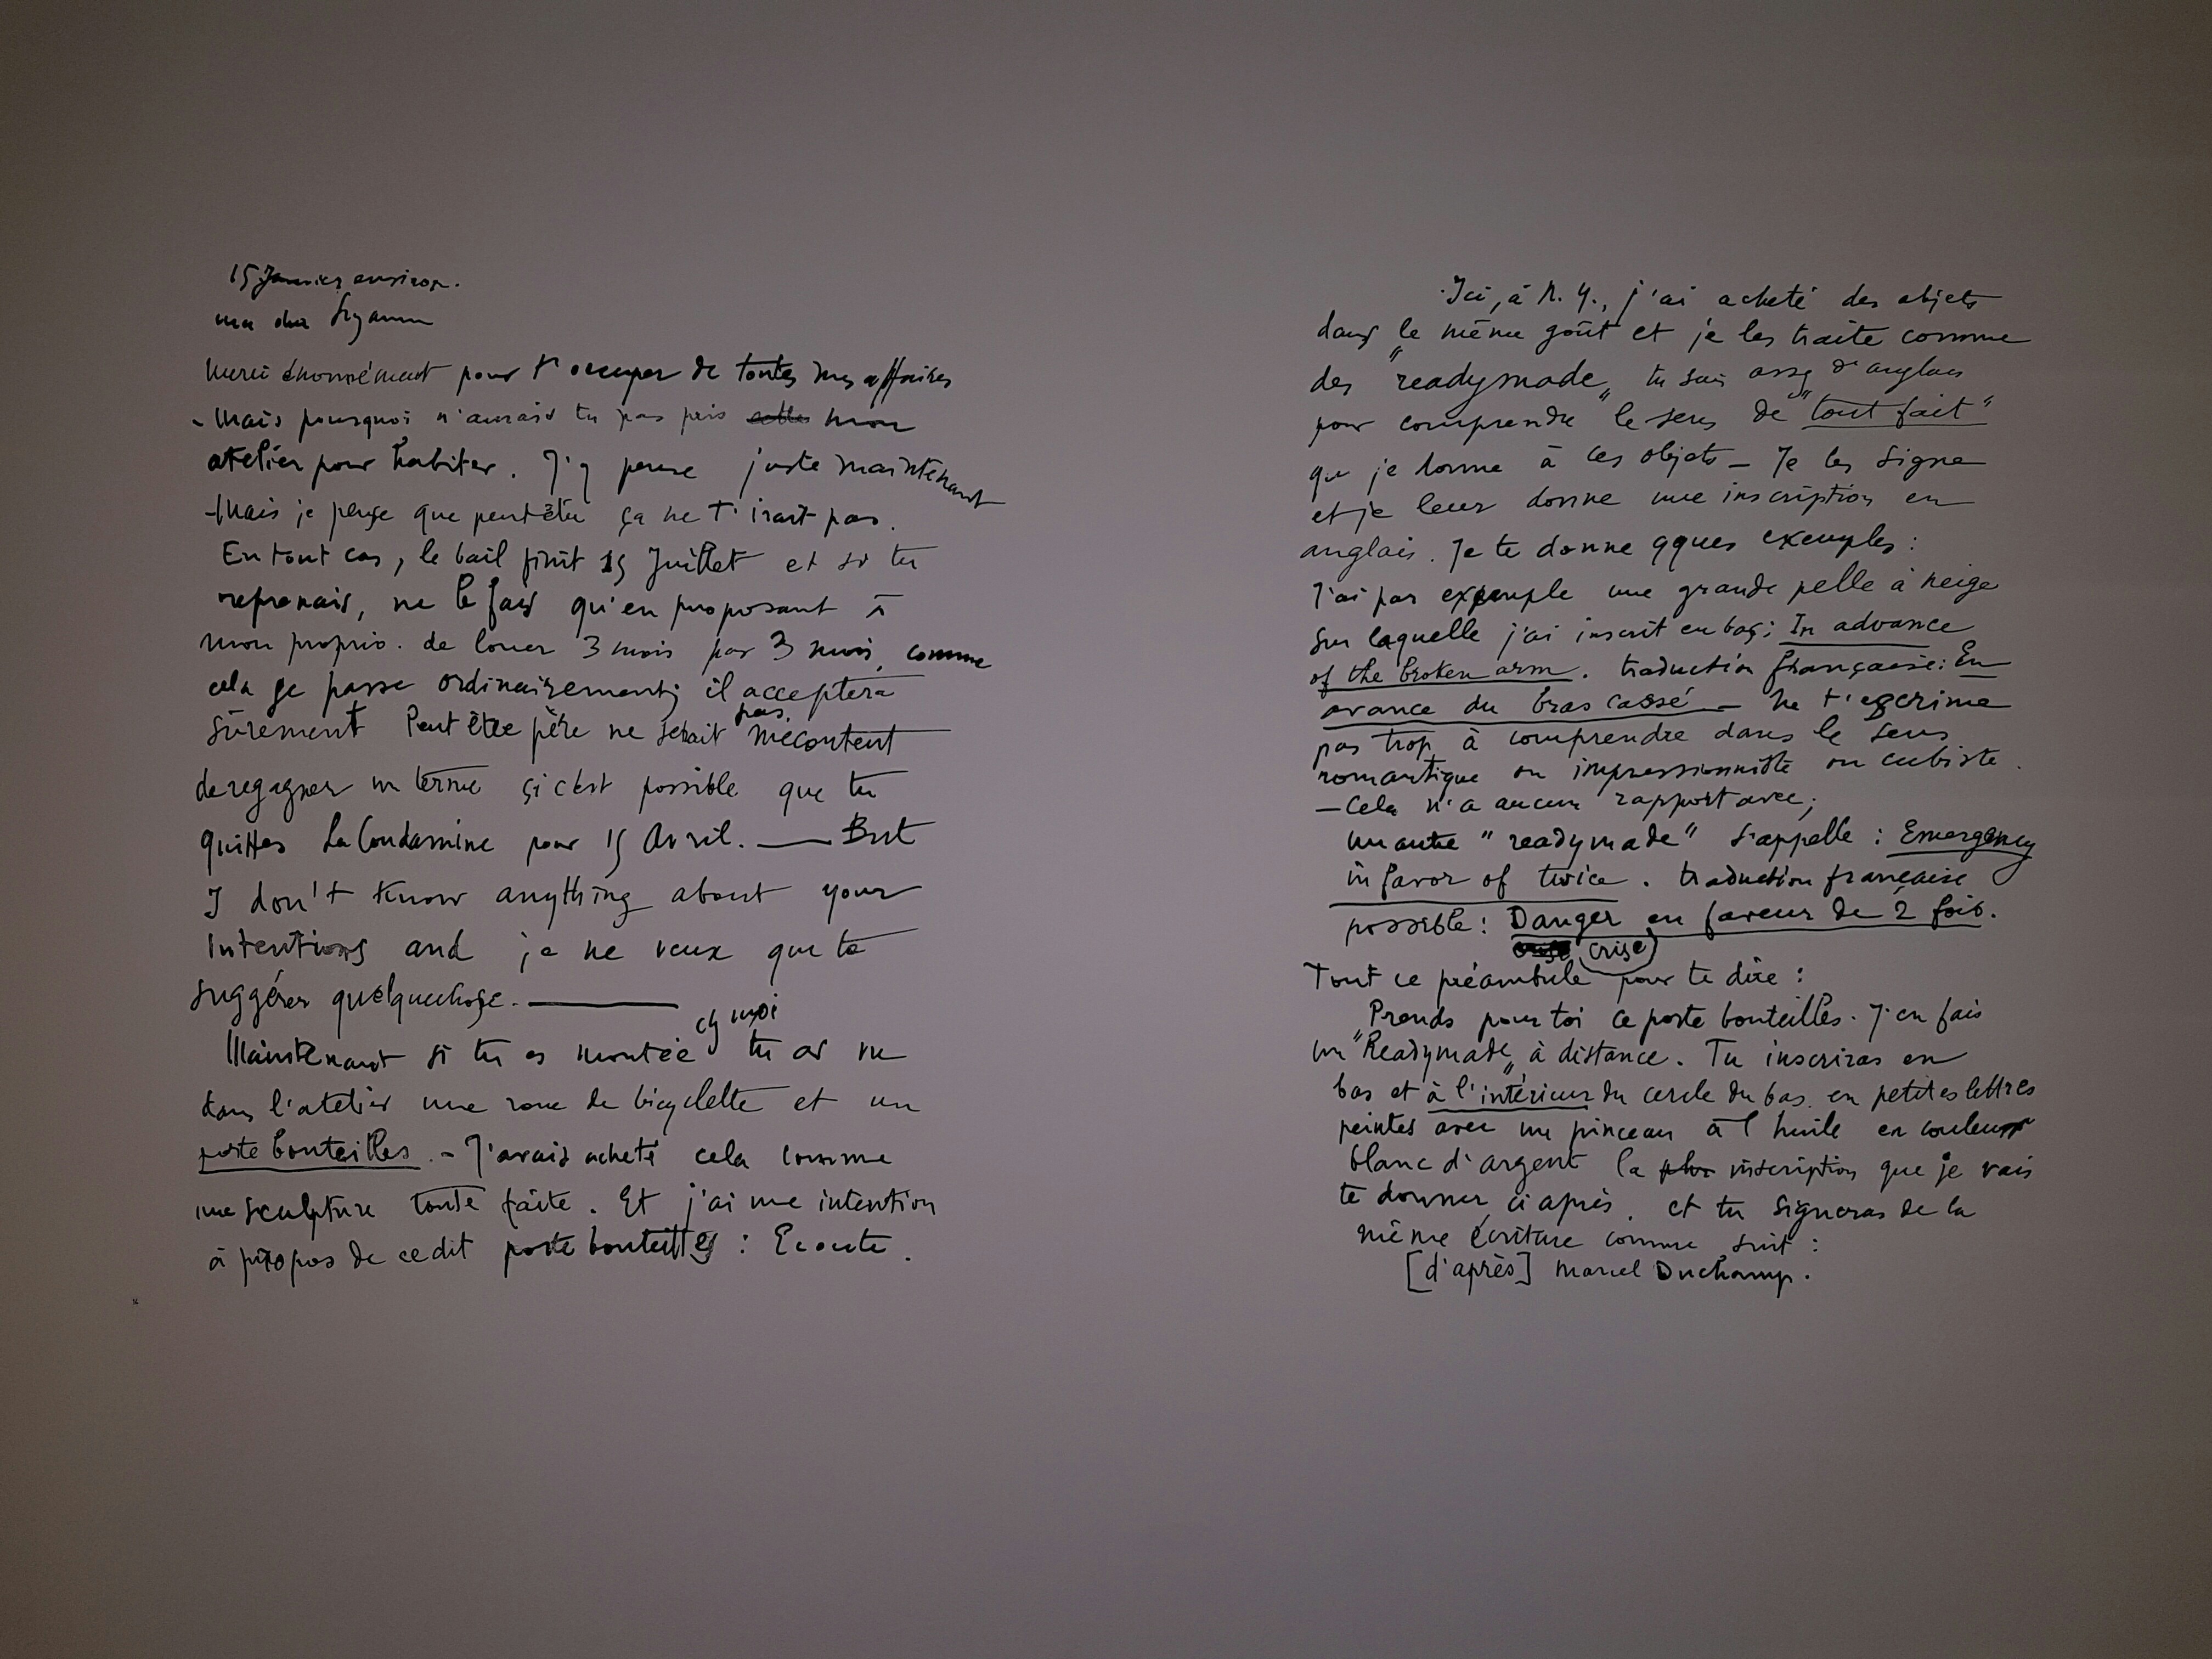 15 Janvier environ.
ma chère Suzanne
Merci énormément pour t'occuper de toutes mes affaires
- Mais pourquoi n'aurais tu pas pris mon
atelier pour habiter. J'y pense juste maintenant
- Mais je pense que peutêtre ça ne t'irait pas.
En tout cas, le bail finit 15 Juillet et si tu
reprenais, ne le fais qu'en proposant à
mon proprio. de louer 3 mois par 3 mois, comme
cela se passe ordinairement; il acceptera
sûrement Peut être père ne serait pas mécontent
de regagner un terme si c'est possible que tu
quittes La Condamine pour 15 Avril. — But
I don't know anything about your
intentions and je ne veux que te
suggérer quelquechose. —
Maintenant si tu es montée chez moi tu as vu
dans l'atelier une roue de bicyclette et un
porte bouteilles. - J'avais acheté cela comme
une sculpture toute faite. Et j'ai une intention
à propos de cedit porte bouteilles : Ecoute.
Ici, à N.Y., j'ai acheté des objets
dans le même goût et je les traite comme
des "readymade" tu sais assez d'anglais
pour comprendre le sens de "tout fait"
que je donne à ces objets - Je les signe
et je leur donne une inscription en
anglais. Je te donne qques exemples :
J'ai par exemple une grande pelle à neige
sur laquelle j'ai inscrit en bas: In advance
of the broken arm. traduction française: En
avance du bras cassé - Ne t'escrime
pas trop à comprendre dans le sens
romantique ou impressionniste ou cubiste.
- Cela n'a aucun rapport avec;
Un autre "readymade" s'appelle : Emergency
in favor of twice. traduction française
possible : Danger en faveur de 2 fois.
(crise)
Tout ce préambule pour te dire :
Prends pour toi ce porte bouteilles. J'en fais
un "Readymade" à distance. Tu inscriras en
bas et à l'intérieur du cercle du bas, en petites lettres
peintes avec un pinceau à l'huile en couleur
blanc d'argent la inscription que je vais
te donner ci après, et tu signeras de la
même écriture comme suit :
[d'après] Marcel Duchamp.